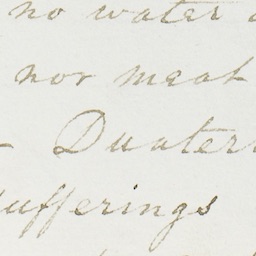 no water
nor meat
- Duater
sufferings